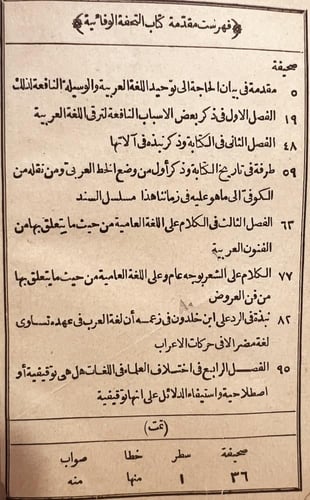 ﴿فهرست مقدمة كتاب التحفة الوفائية﴾
صحيفة
٥ مقدمة في بيان الحاجة الى توحيد اللغة العربية والوسيلة النافعة لذلك
١٩ الفصل الاول في ذكر بعض الاسباب النافعة لترقى اللغة العربية
٤٨ الفصل الثانى فى الكتابة وذكر نبذة فى آلاتها
٥٩ طرفة فى تاريخ الكتابة وذكر أول من وضع الخط العربى ومن نقله من
الكوفى الى ما هو عليه فى زماننا هذا مسلسل السند
٦٣ الفصل الثالث فى الكلام على اللغة العامية من حيث ما يتعلق بها من
الفنون العربية
٧٧ الكلام على الشعر بوجه عام وعلى اللغة العامية من حيث ما يتعلق بها
من فن العروض
٨٢ نبذة فى الرد على ابن خلدون فى زعمه أن لغة العرب فى عهده تساوى
لغة مضر الا فى حركات الاعراب
٩٥ الفصل الرابع فى اختلاف العلماء فى اللغات هل هى توقيفية أو
اصطلاحية واستيفاء الدلائل على انها توقيفية
(تمت)
صحيفة سطر خطا صواب
٣٦ ١ منها منه